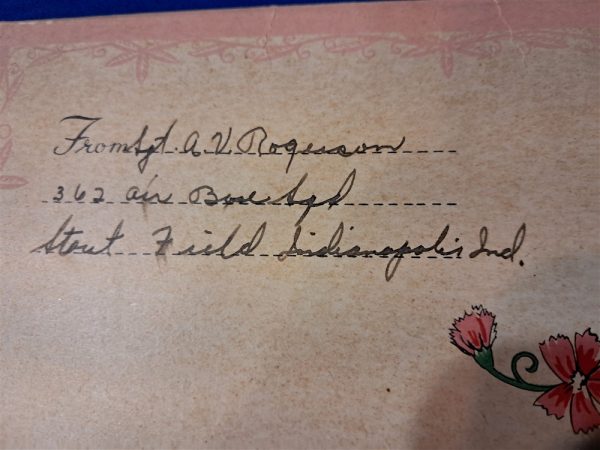 From Sgt. A. V. Rogerson
362 Air Base Sqd
Stout Field Indianapolis Ind.